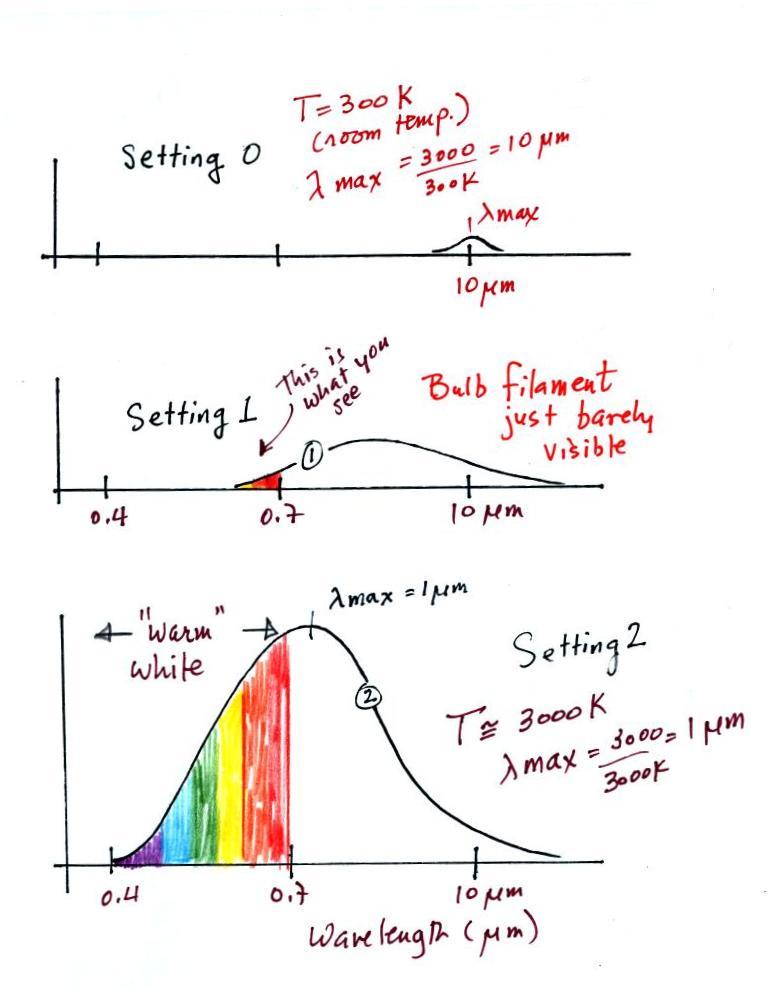 T = 300 K
(room temp.)
Setting 0
λ max = 3000 / 300K = 10 μm
λmax
10 μm
This is
what you
see
Bulb filament
just barely
visible
Setting 1
①
0.4 0.7 10 μm
λmax = 1μm
"warm"
white
Setting 2
②
T ≅ 3000 K
λ max = 3000 / 3000K = 1 μm
0.4 0.7 10 μm
Wavelength (μm)